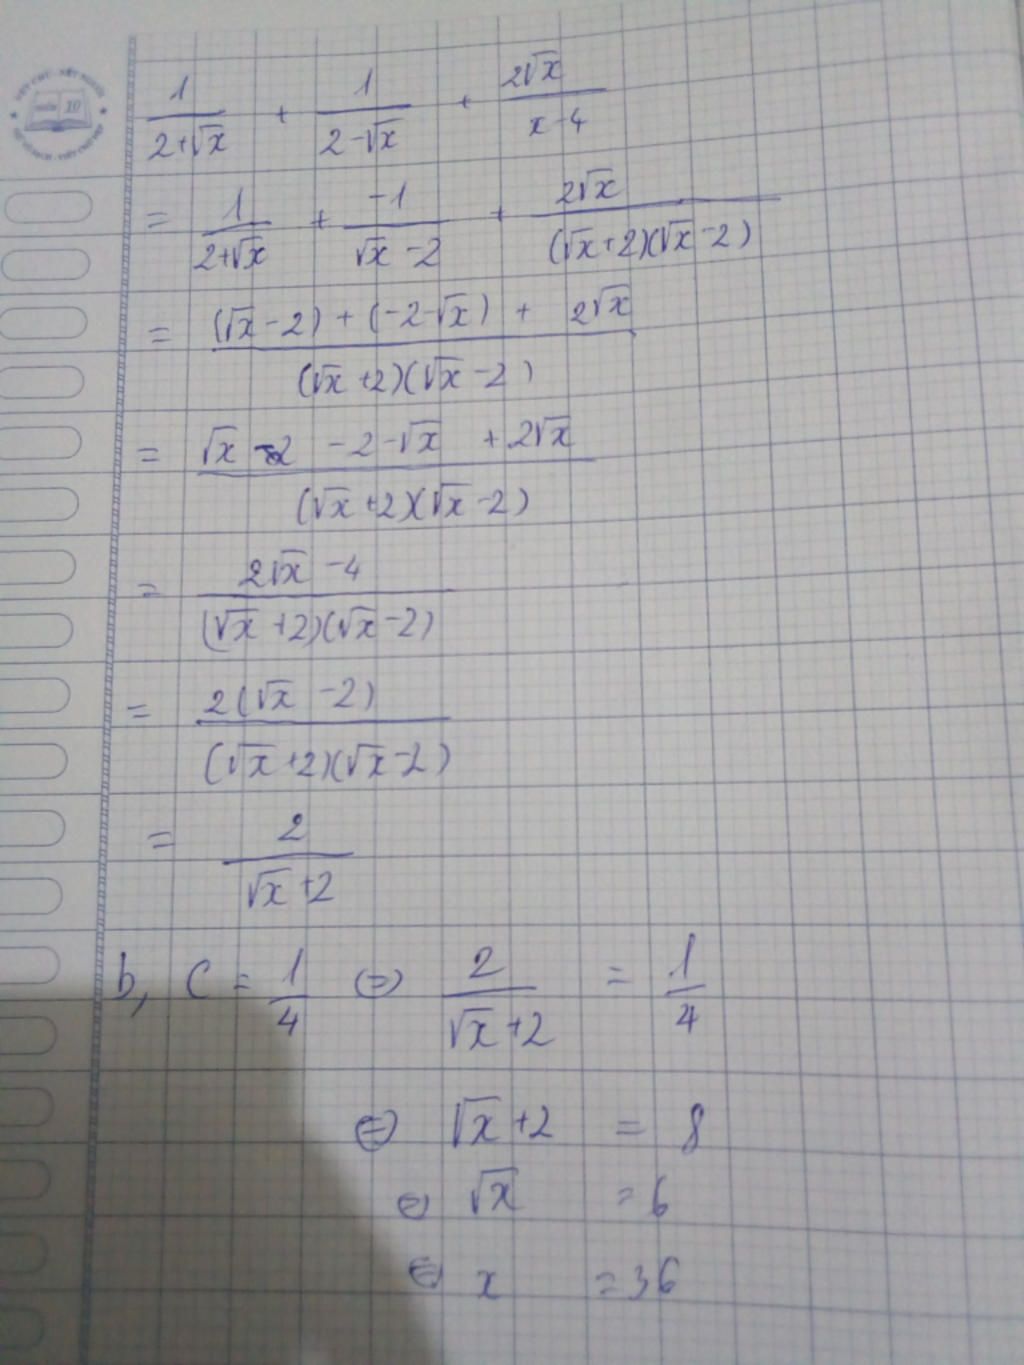 1/(2+√x) + 1/(2-√x) + 2√x/(x-4)
= 1/(2+√x) + -1/(√x-2) + 2√x/((√x+2)(√x-2))
= ((√x-2)+(-2-√x) + 2√x)/((√x+2)(√x-2))
= (√x-2 -2-√x +2√x)/((√x+2)(√x-2))
= (2√x-4)/((√x+2)(√x-2))
= 2(√x-2)/((√x+2)(√x-2))
= 2/(√x+2)
b, C = 1/4 ⇔ 2/(√x+2) = 1/4
⇔ √x+2 = 8
⇔ √x = 6
⇔ x = 36